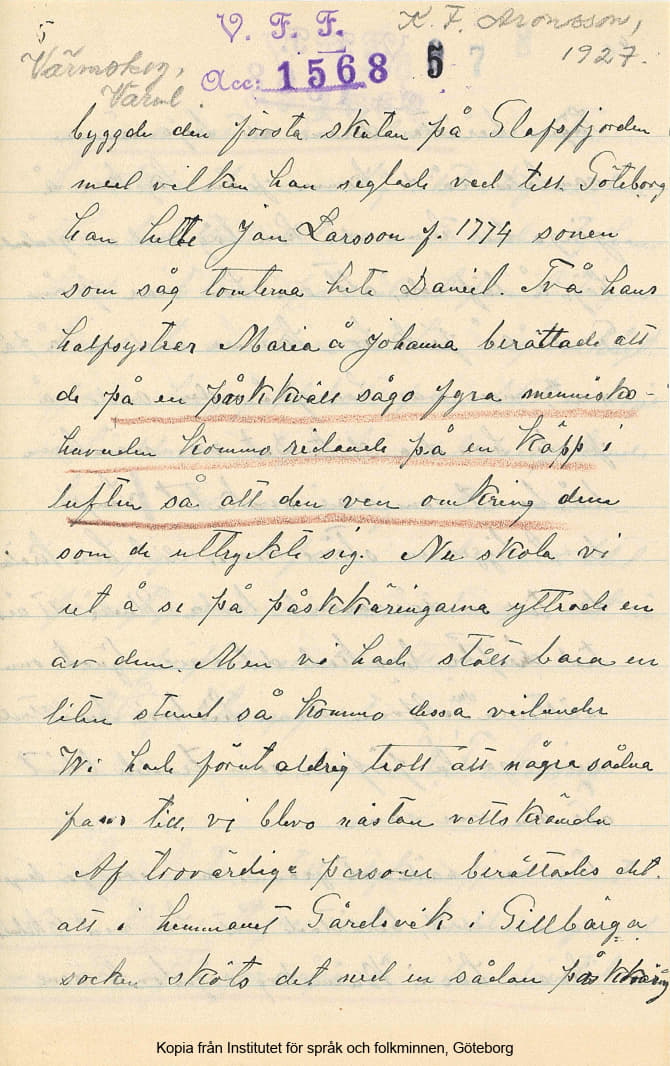 5
V. F. F.
K. F. Aronsson,
1927.
Värmskog,
Värml
Acc: 1568
5
7
byggde den första skutan på Glafsfjorden
med vilken han seglade ved till Göteborg
han hette Jan Larsson f. 1774 sonen
som såg tomterna hete Daniel. Två hans
halfsystrar Maria å Johanna berättade att
de på en påskkväll sågo fyra mennisko-
huvuden kommo ridande på en käpp i
luften så att den ven omkring dem
som de uttryckte sig. Nu skola vi
ut å se på påskkäringarna yttrade en
av dem. Men vi hade stått bara en
liten stund så kommo dessa
Wi hade förut aldrig trott att några sådna
fans till, vi blevo nästan vettskrämda
Af trovärdige personer berättades det.
att i hemmanet Gårdsvik i Gillbärga
socken sköts det ned en sådan påskkäring
Kopia från Institutet för språk och folkminnen, Göteborg